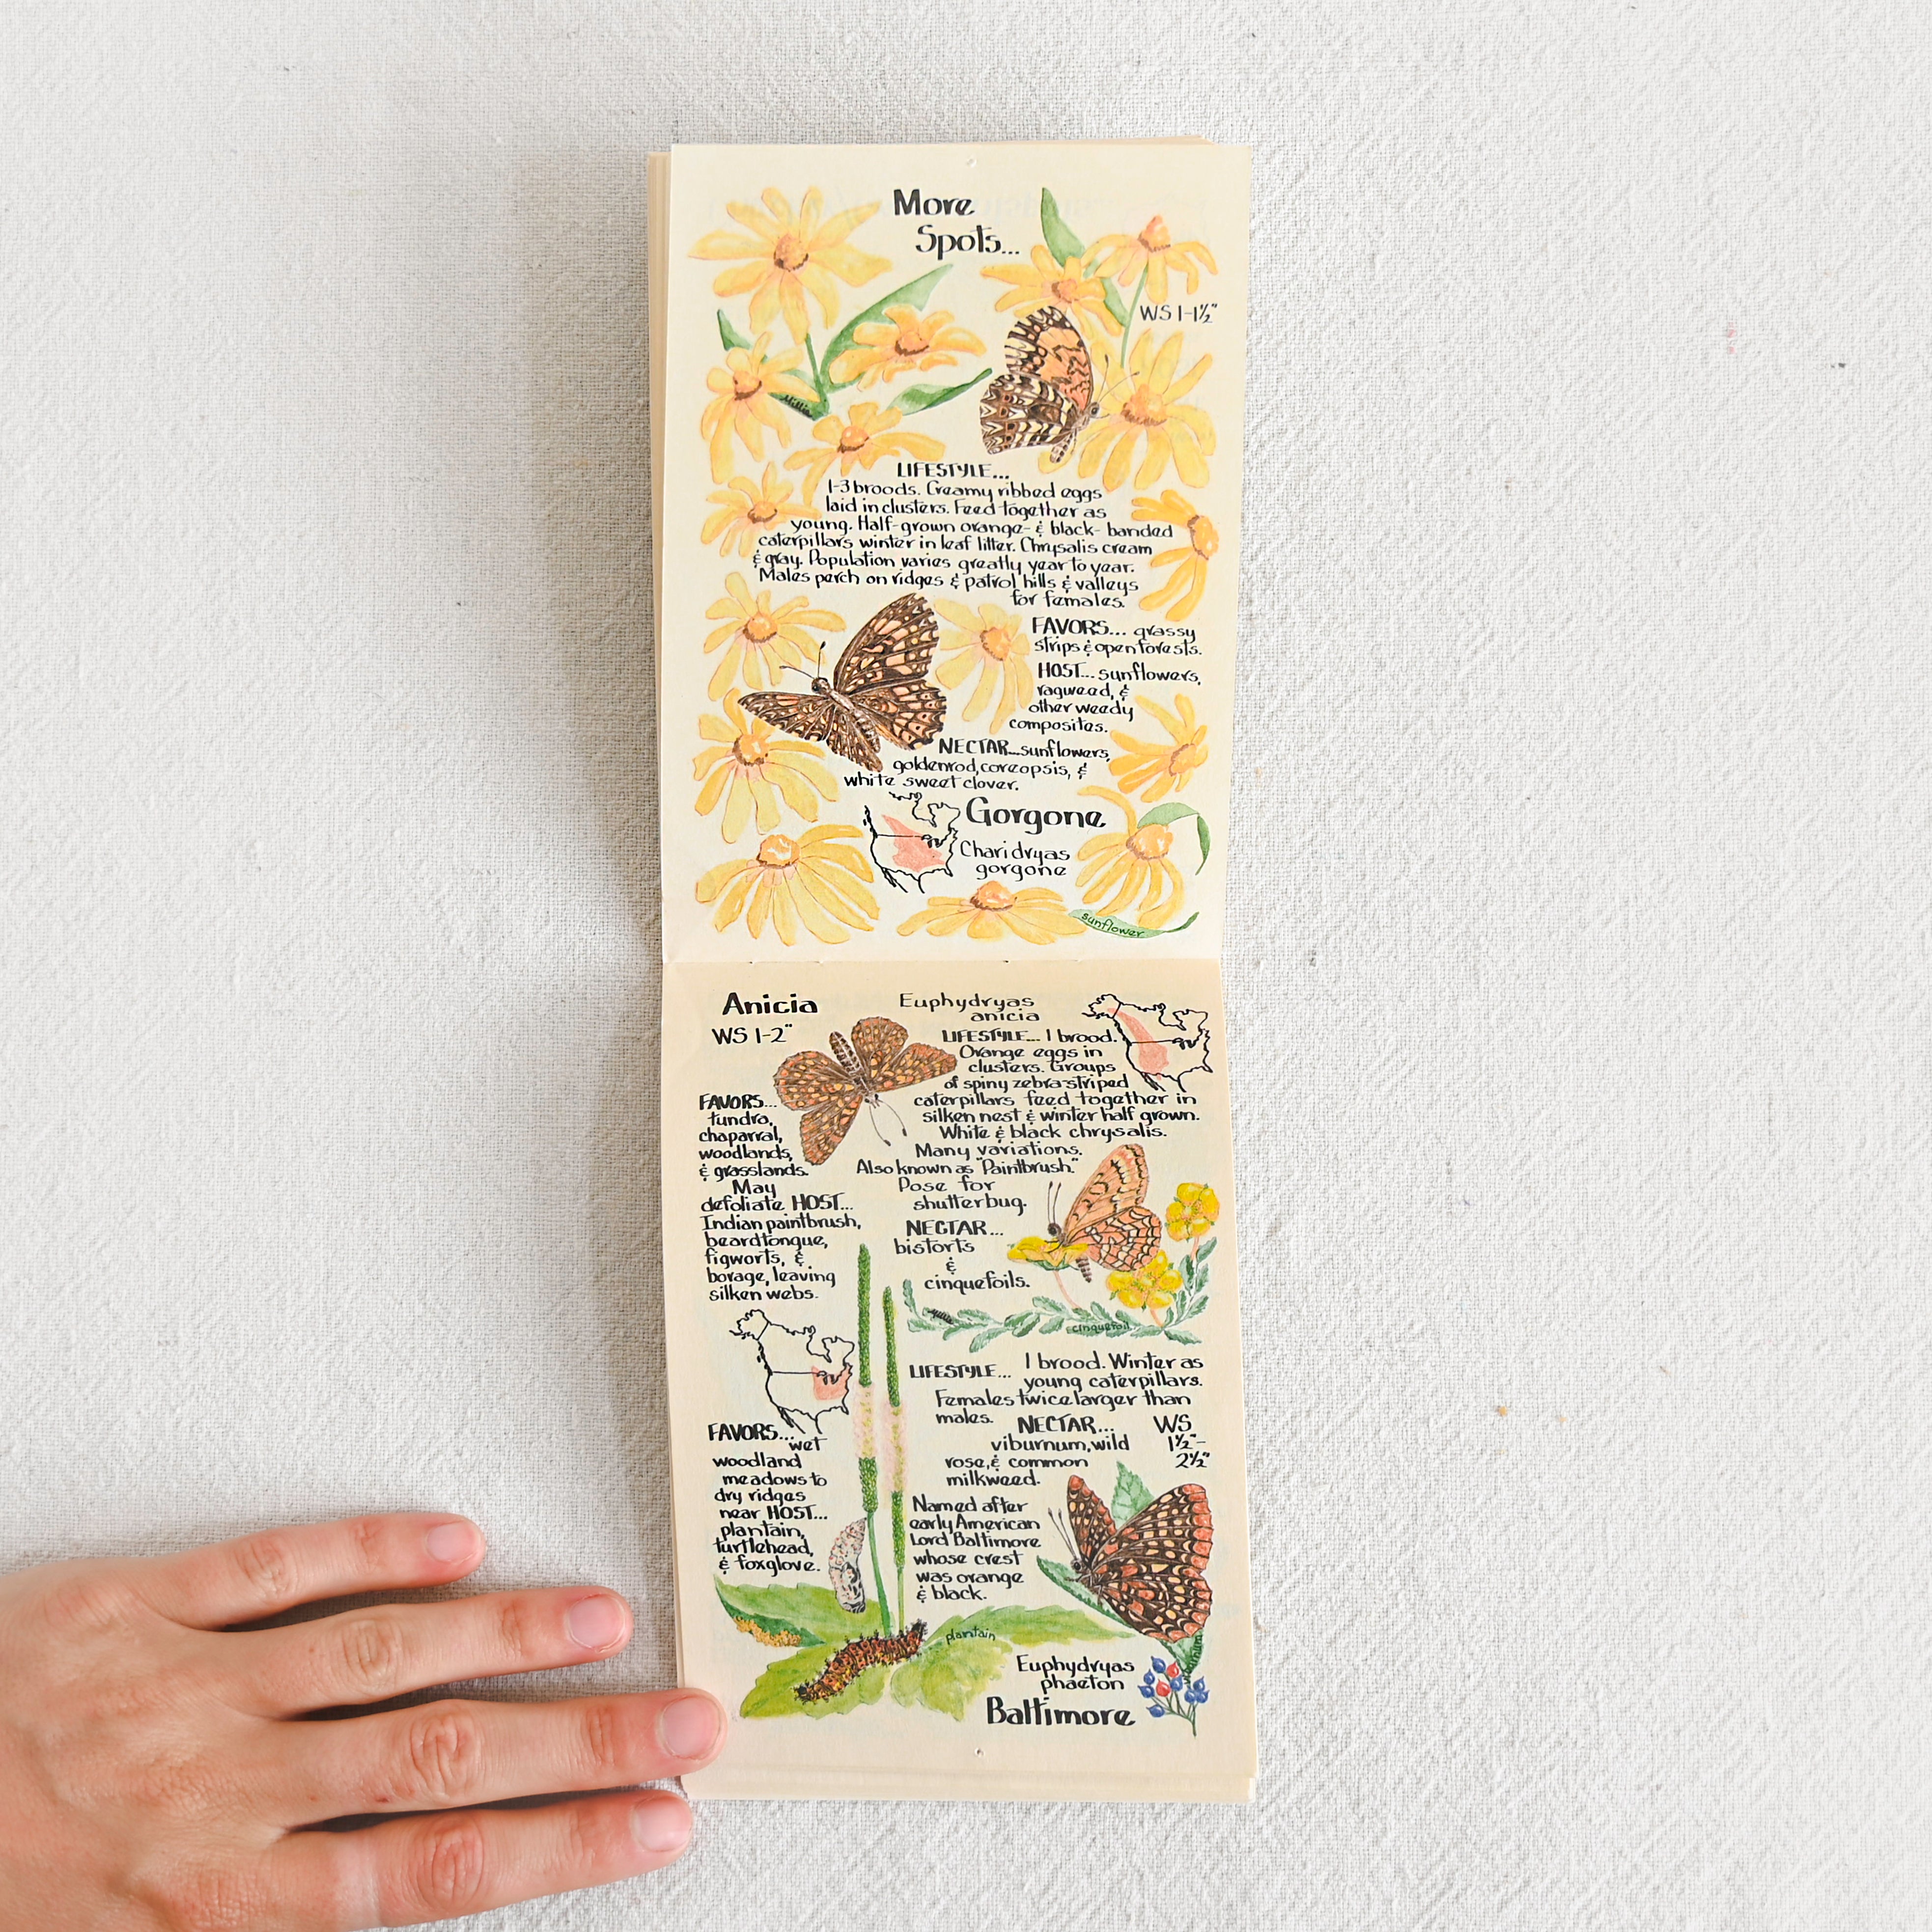 More
Spots...
WS 1-1½"
Millie
LIFESTYLE...
1-3 broods. Creamy ribbed eggs
laid in clusters. Feed together as
young. Half-grown orange- & black-banded
caterpillars winter in leaf litter. Chrysalis cream
& gray. Population varies greatly year to year.
Males perch on ridges & patrol hills & valleys
for females.
FAVORS... grassy
strips & open forests.
HOST... sunflowers,
ragweed, &
other weedy
composites.
NECTAR... sunflowers,
goldenrod, coreopsis, &
white sweet clover.
Gorgone
Charidryas
gorgone
sunflower
Anicia
WS 1-2"
Euphydryas
anicia
LIFESTYLE... 1 brood.
Orange eggs in
clusters. Groups
of spiny zebra-striped
caterpillars feed together in
silken nest & winter half grown.
White & black chrysalis.
Many variations.
Also known as "Paintbrush."
Pose for
shutterbug.
NECTAR...
bistorts
&
cinquefoils.
FAVORS...
tundra,
chaparral,
woodlands,
& grasslands.
May
defoliate HOST...
Indian paintbrush,
beardtongue,
figworts, &
borage, leaving
silken webs.
cinquefoil
LIFESTYLE... 1 brood. Winter as
young caterpillars.
Females twice larger than
males.
NECTAR...
viburnum, wild
rose, & common
milkweed.
WS
1½"-
2½"
Named after
early American
Lord Baltimore
whose crest
was orange
& black.
FAVORS... wet
woodland
meadows to
dry ridges
near HOST...
plantain,
turtlehead,
& foxglove.
plantain
viburnum
Euphydryas
phaeton
Baltimore